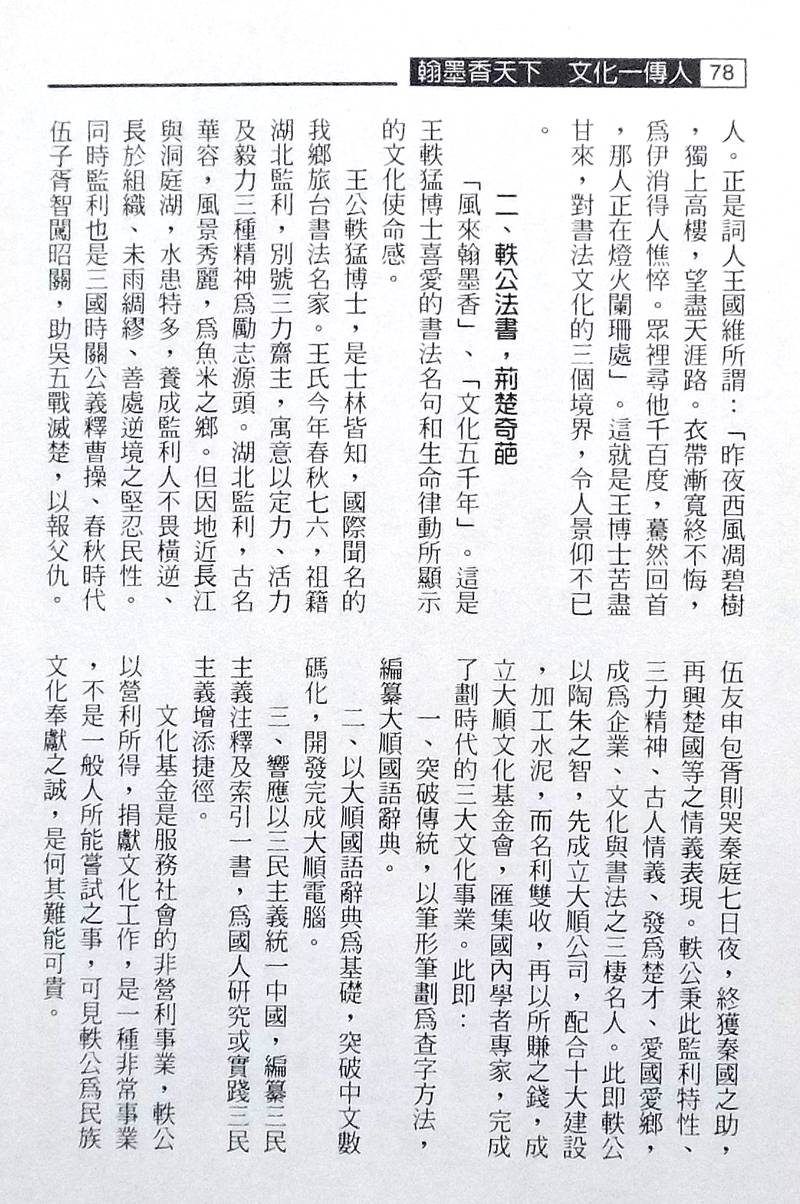 翰墨香天下　文化一傳人 78
人。正是詞人王國維所謂：「昨夜西風凋碧樹
，獨上高樓，望盡天涯路。衣帶漸寬終不悔，
爲伊消得人憔悴。眾裡尋他千百度，驀然回首
，那人正在燈火闌珊處」。這就是王博士苦盡
甘來，對書法文化的三個境界，令人景仰不已
。
二、軼公法書，荊楚奇葩
「風來翰墨香」、「文化五千年」。這是
王軼猛博士喜愛的書法名句和生命律動所顯示
的文化使命感。
王公軼猛博士，是士林皆知，國際聞名的
我鄉旅台書法名家。王氏今年春秋七六，祖籍
湖北監利，別號三力齋主，寓意以定力、活力
及毅力三種精神爲勵志源頭。湖北監利，古名
華容，風景秀麗，爲魚米之鄉。但因地近長江
與洞庭湖，水患特多，養成監利人不畏橫逆、
長於組織、未雨綢繆、善處逆境之堅忍民性。
同時監利也是三國時關公義釋曹操、春秋時代
伍子胥智闖昭關，助吳五戰滅楚，以報父仇。
伍友申包胥則哭秦庭七日夜，終獲秦國之助，
再興楚國等之情義表現。軼公秉此監利特性、
三力精神、古人情義、發爲楚才、愛國愛鄉，
成爲企業、文化與書法之三棲名人。此即軼公
以陶朱之智，先成立大順公司，配合十大建設
，加工水泥，而名利雙收，再以所賺之錢，成
立大順文化基金會，匯集國內學者專家，完成
了劃時代的三大文化事業。此即：
一、突破傳統，以筆形筆劃爲查字方法，
編纂大順國語辭典。
二、以大順國語辭典爲基礎，突破中文數
碼化，開發完成大順電腦。
三、響應以三民主義統一中國，編纂三民
主義注釋及索引一書，爲國人研究或實踐三民
主義增添捷徑。
文化基金是服務社會的非營利事業，軼公
以營利所得，捐獻文化工作，是一種非常事業
，不是一般人所能嘗試之事，可見軼公爲民族
文化奉獻之誠，是何其難能可貴。